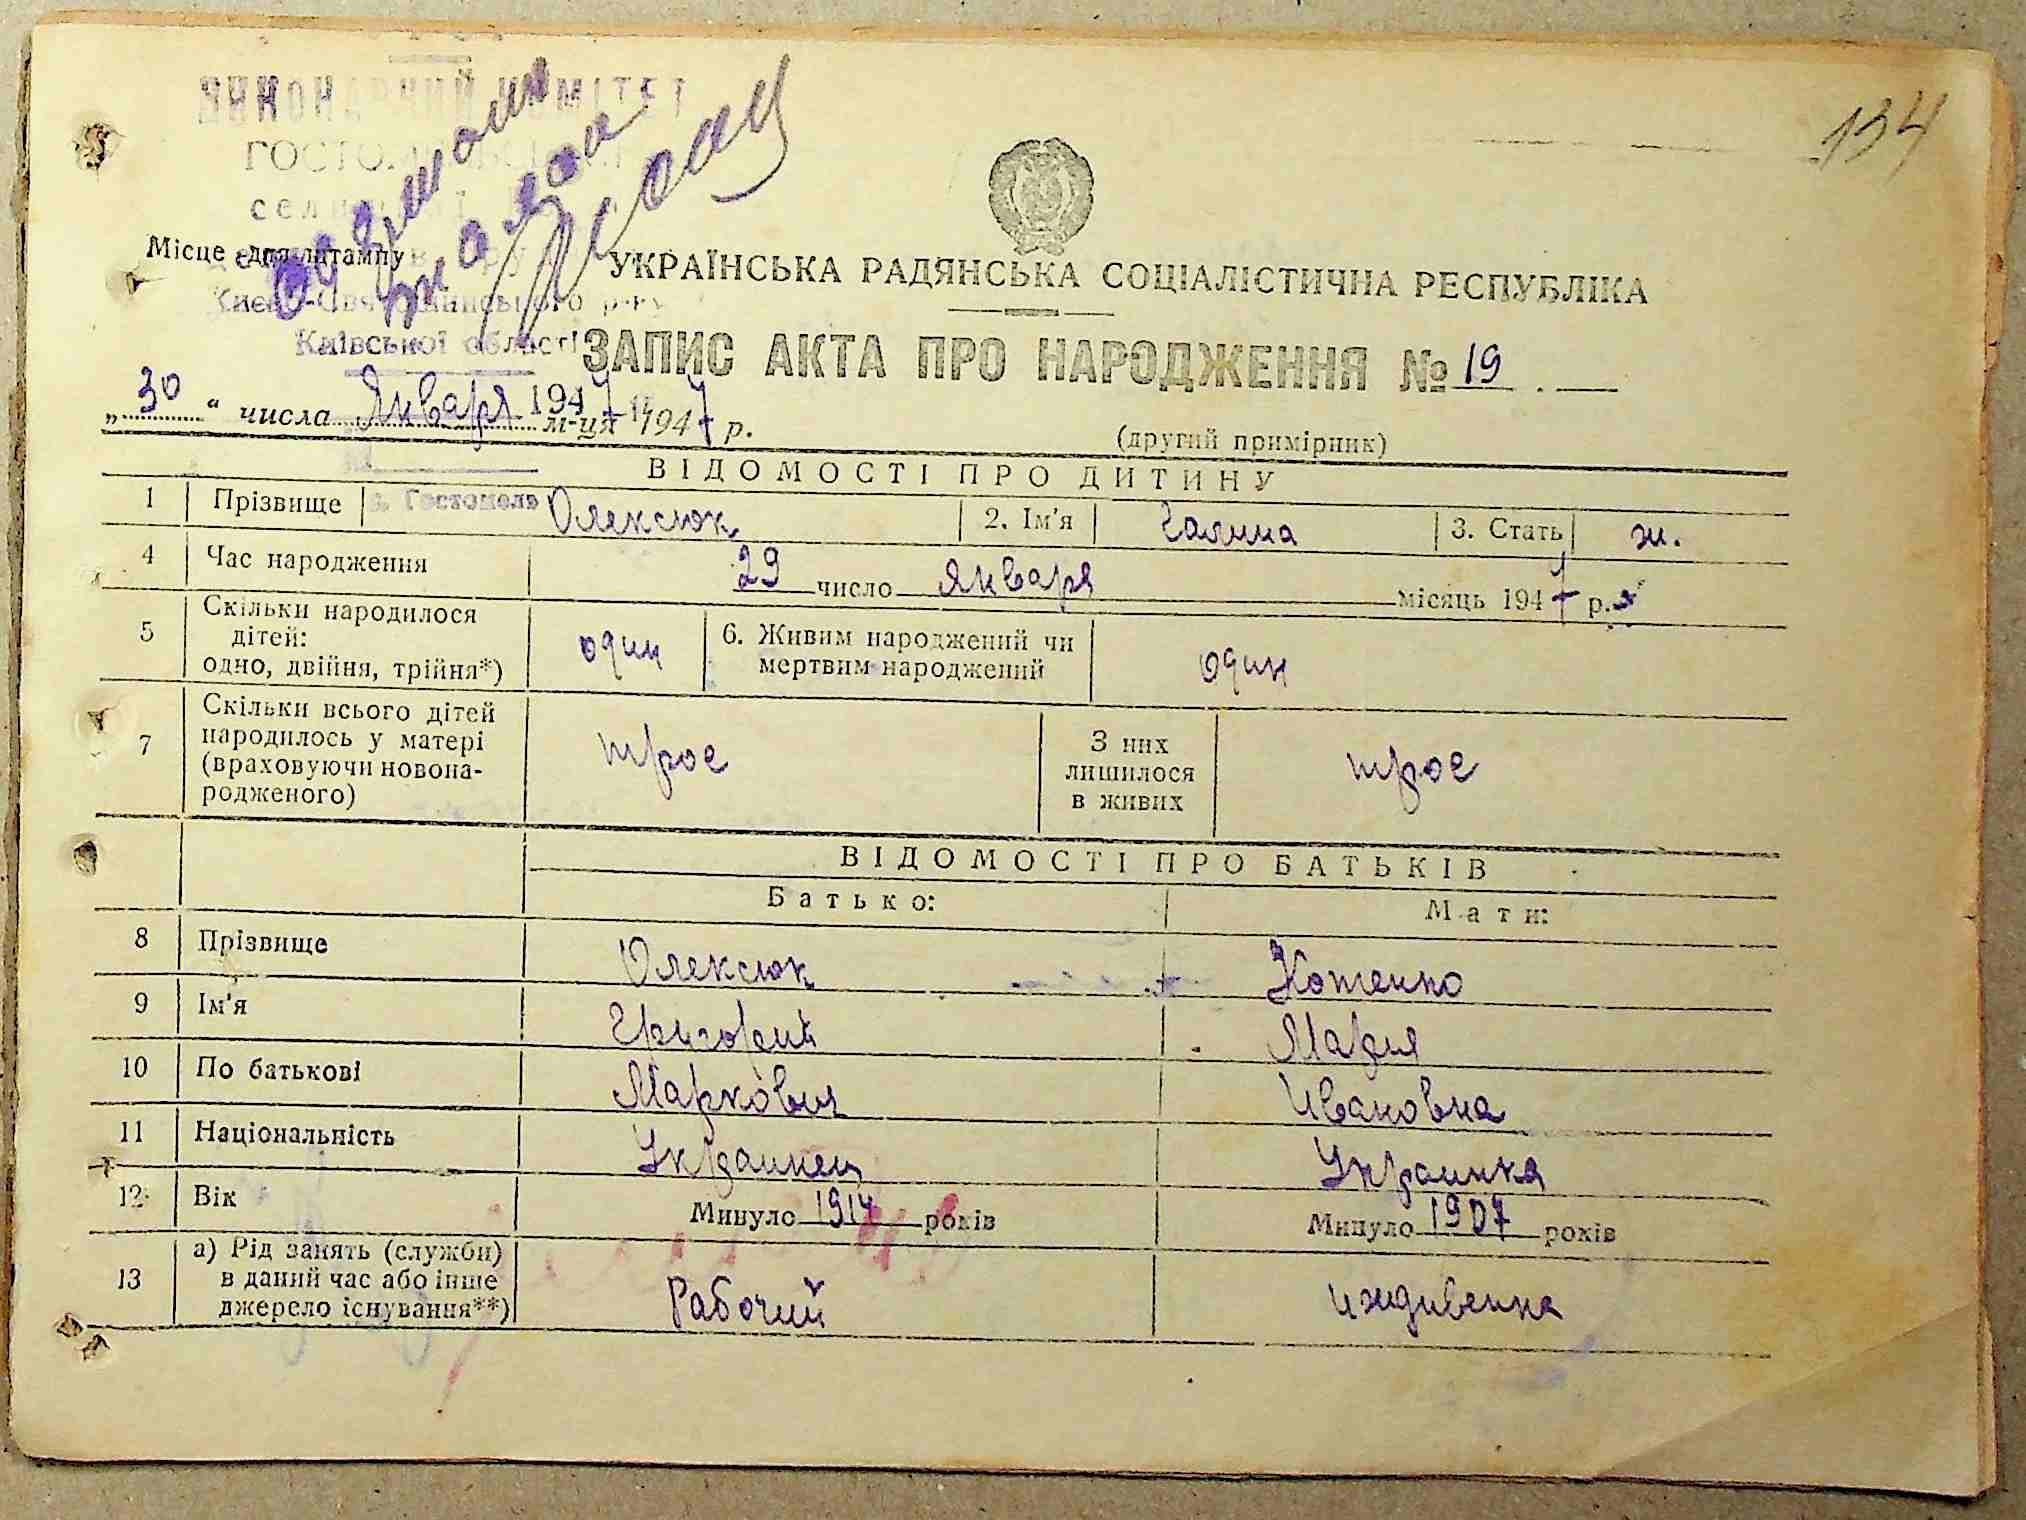 134
ВИКОНАВЧИЙ КОМІТЕТ
ГОСТОМЕЛЬСЬКОЇ
селищної
Місце для штампу
Києво-Святошинського р-ну
Київської області
УКРАЇНСЬКА РАДЯНСЬКА СОЦІАЛІСТИЧНА РЕСПУБЛІКА
ЗАПИС АКТА ПРО НАРОДЖЕННЯ № 19
„30“ числа Января м-ця 1947 р.
1947
(другий примірник)
ВІДОМОСТІ ПРО ДИТИНУ
с. Гостомель
1 Прізвище Олексюк 2. Ім'я Галина 3. Стать ж.
4 Час народження 29 число Января місяць 1947 р.
5 Скільки народилося дітей: одно, двійня, трійня*) один 6. Живим народжений чи мертвим народжений один
7 Скільки всього дітей народилось у матері (враховуючи новонародженого) трое З них лишилося в живих трое
ВІДОМОСТІ ПРО БАТЬКІВ
Батько: Мати:
8 Прізвище Олексюк Котенко
9 Ім'я Григорий Мария
10 По батькові Маркович Ивановна
11 Національність Украинец Украинка
12 Вік Минуло 1914 років Минуло 1907 років
13 а) Рід занять (служби) в даний час або інше джерело існування**) Рабочий иждивенка